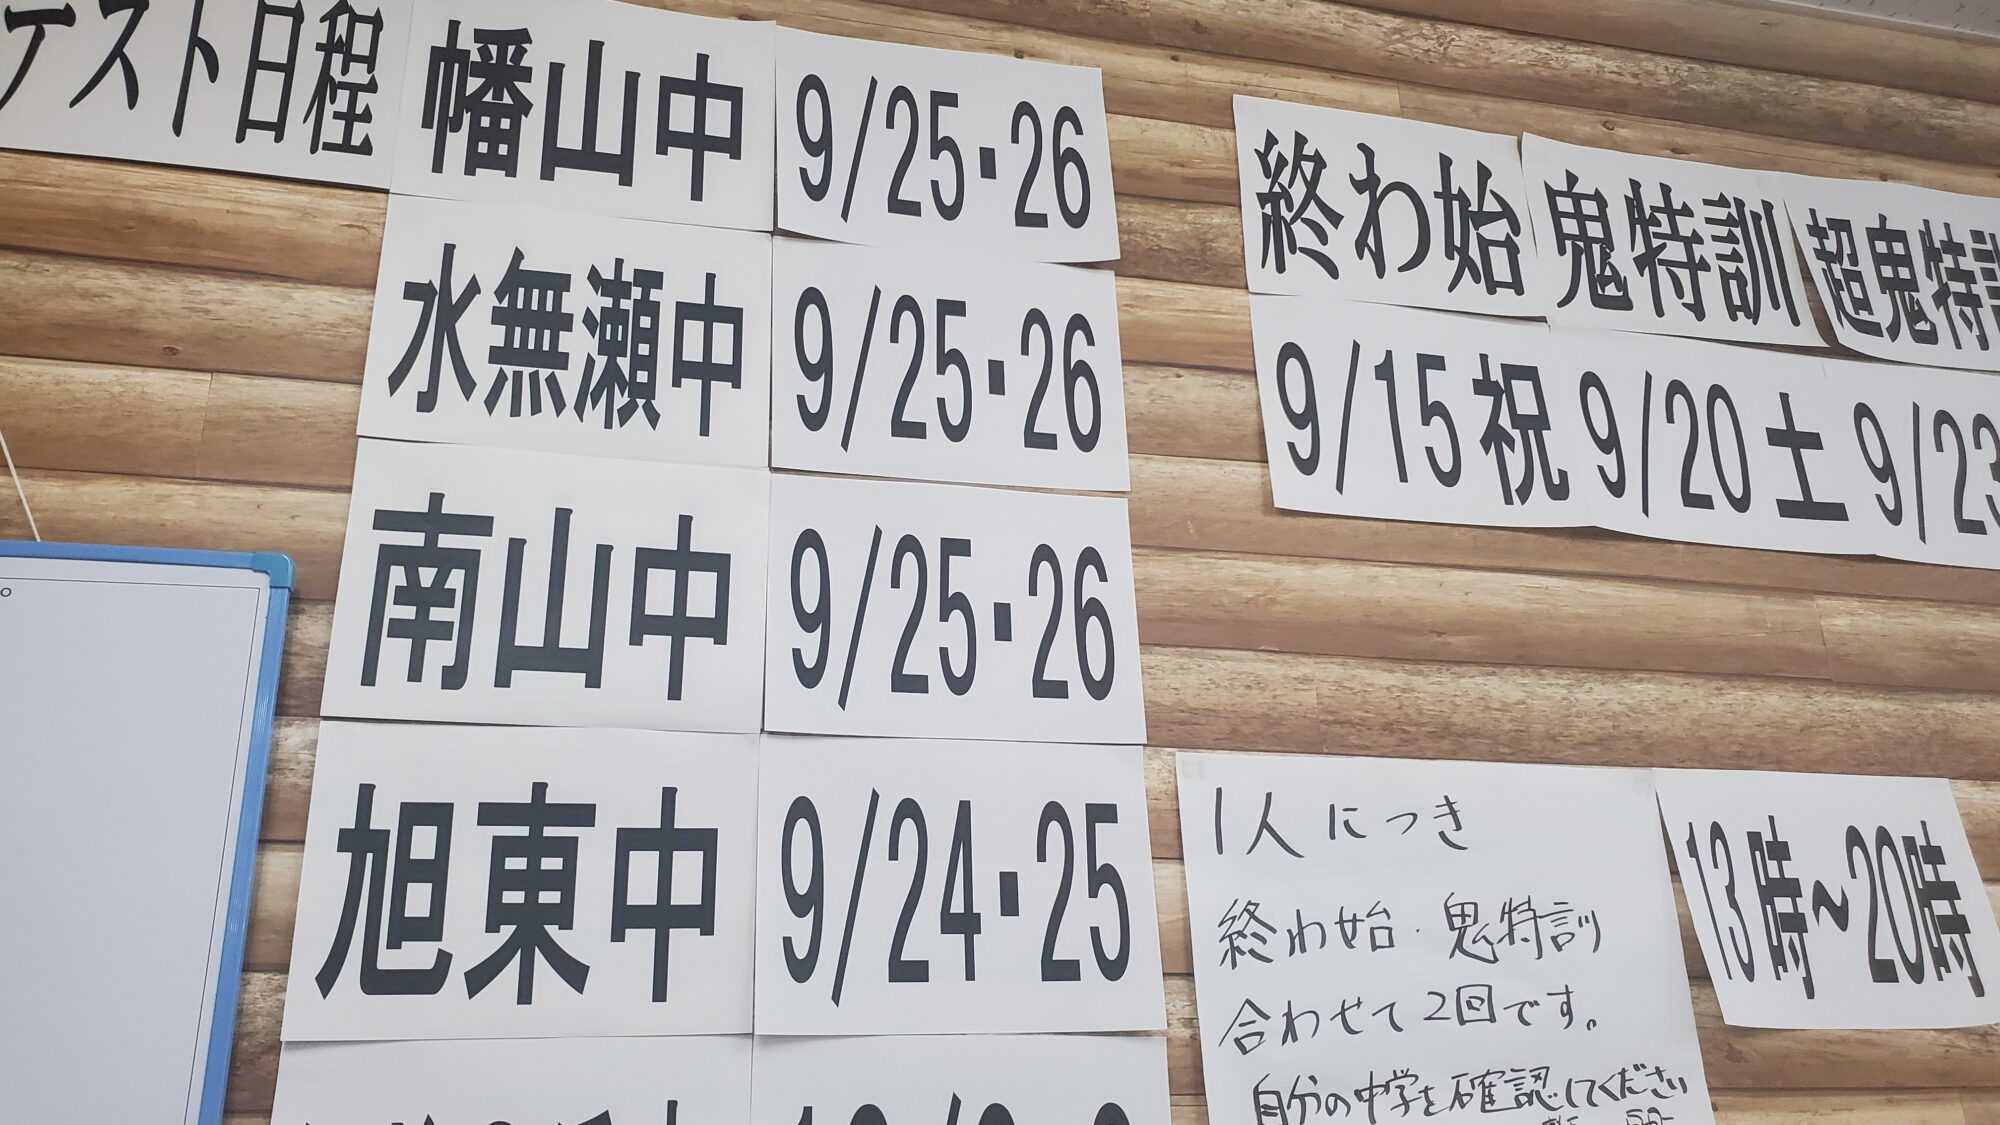 テスト日程
幡山中 9/25・26
水無瀬中 9/25・26
南山中 9/25・26
旭東中 9/24・25
終わ始 鬼特訓 超鬼特訓
9/15 祝 9/20 土 9/23
1人につき
終わ始・鬼特訓
合わせて2回です。
自分の中学を確認してください
13時~20時